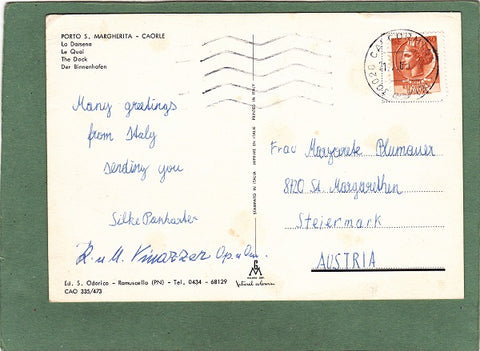 PORTO S. MARGHERITA - CAORLE
La Darsena
Le Quai
The Dock
Der Binnenhafen
Many greetings
from Italy
sending you
Silke Panharter
R. u M. Vinazzer Opa u Om.
Ed. S. Odorico - Ramuscello (PN) - Tel. 0434 - 68129
CAO 335/473
STAMPATO IN ITALIA IMPRIMÉ EN ITALIE PRINTED IN ITALY
30020
Frau Margarete Blumauer
8720 St. Margarethen
Steiermark
AUSTRIA